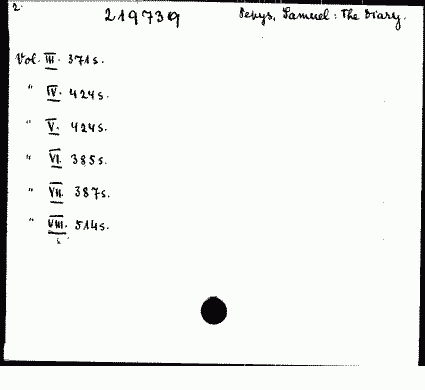 2.
219739 Pepys, Samuel: The Diary.
Vol. III. 371s.
" IV. 424s.
" V. 424s.
" VI. 385s.
" VII. 387s.
" VIII. 514s.